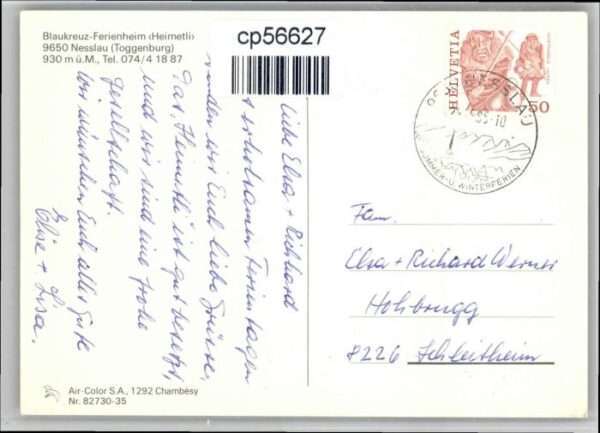 Blaukreuz-Ferienheim ‹Heimetli›
9650 Nesslau (Toggenburg)
930 m ü.M., Tel. 074/4 18 87
cp56627
HELVETIA
50
NESSLAU
SOMMER- U. WINTERFERIEN
Liebe Elsa + Richard
erholsamen Ferientagen
senden wir Euch liebe Grüsse,
Das "Heimetli" ist gut besetzt,
und wir sind eine frohe
Gesellschaft.
Wir wünschen Euch alles Gute
Elise + Lisa.
Fam.
Elsa + Richard Werner
Holzbrugg
8226 Schleitheim
Air-Color S.A., 1292 Chambésy
Nr. 82730-35